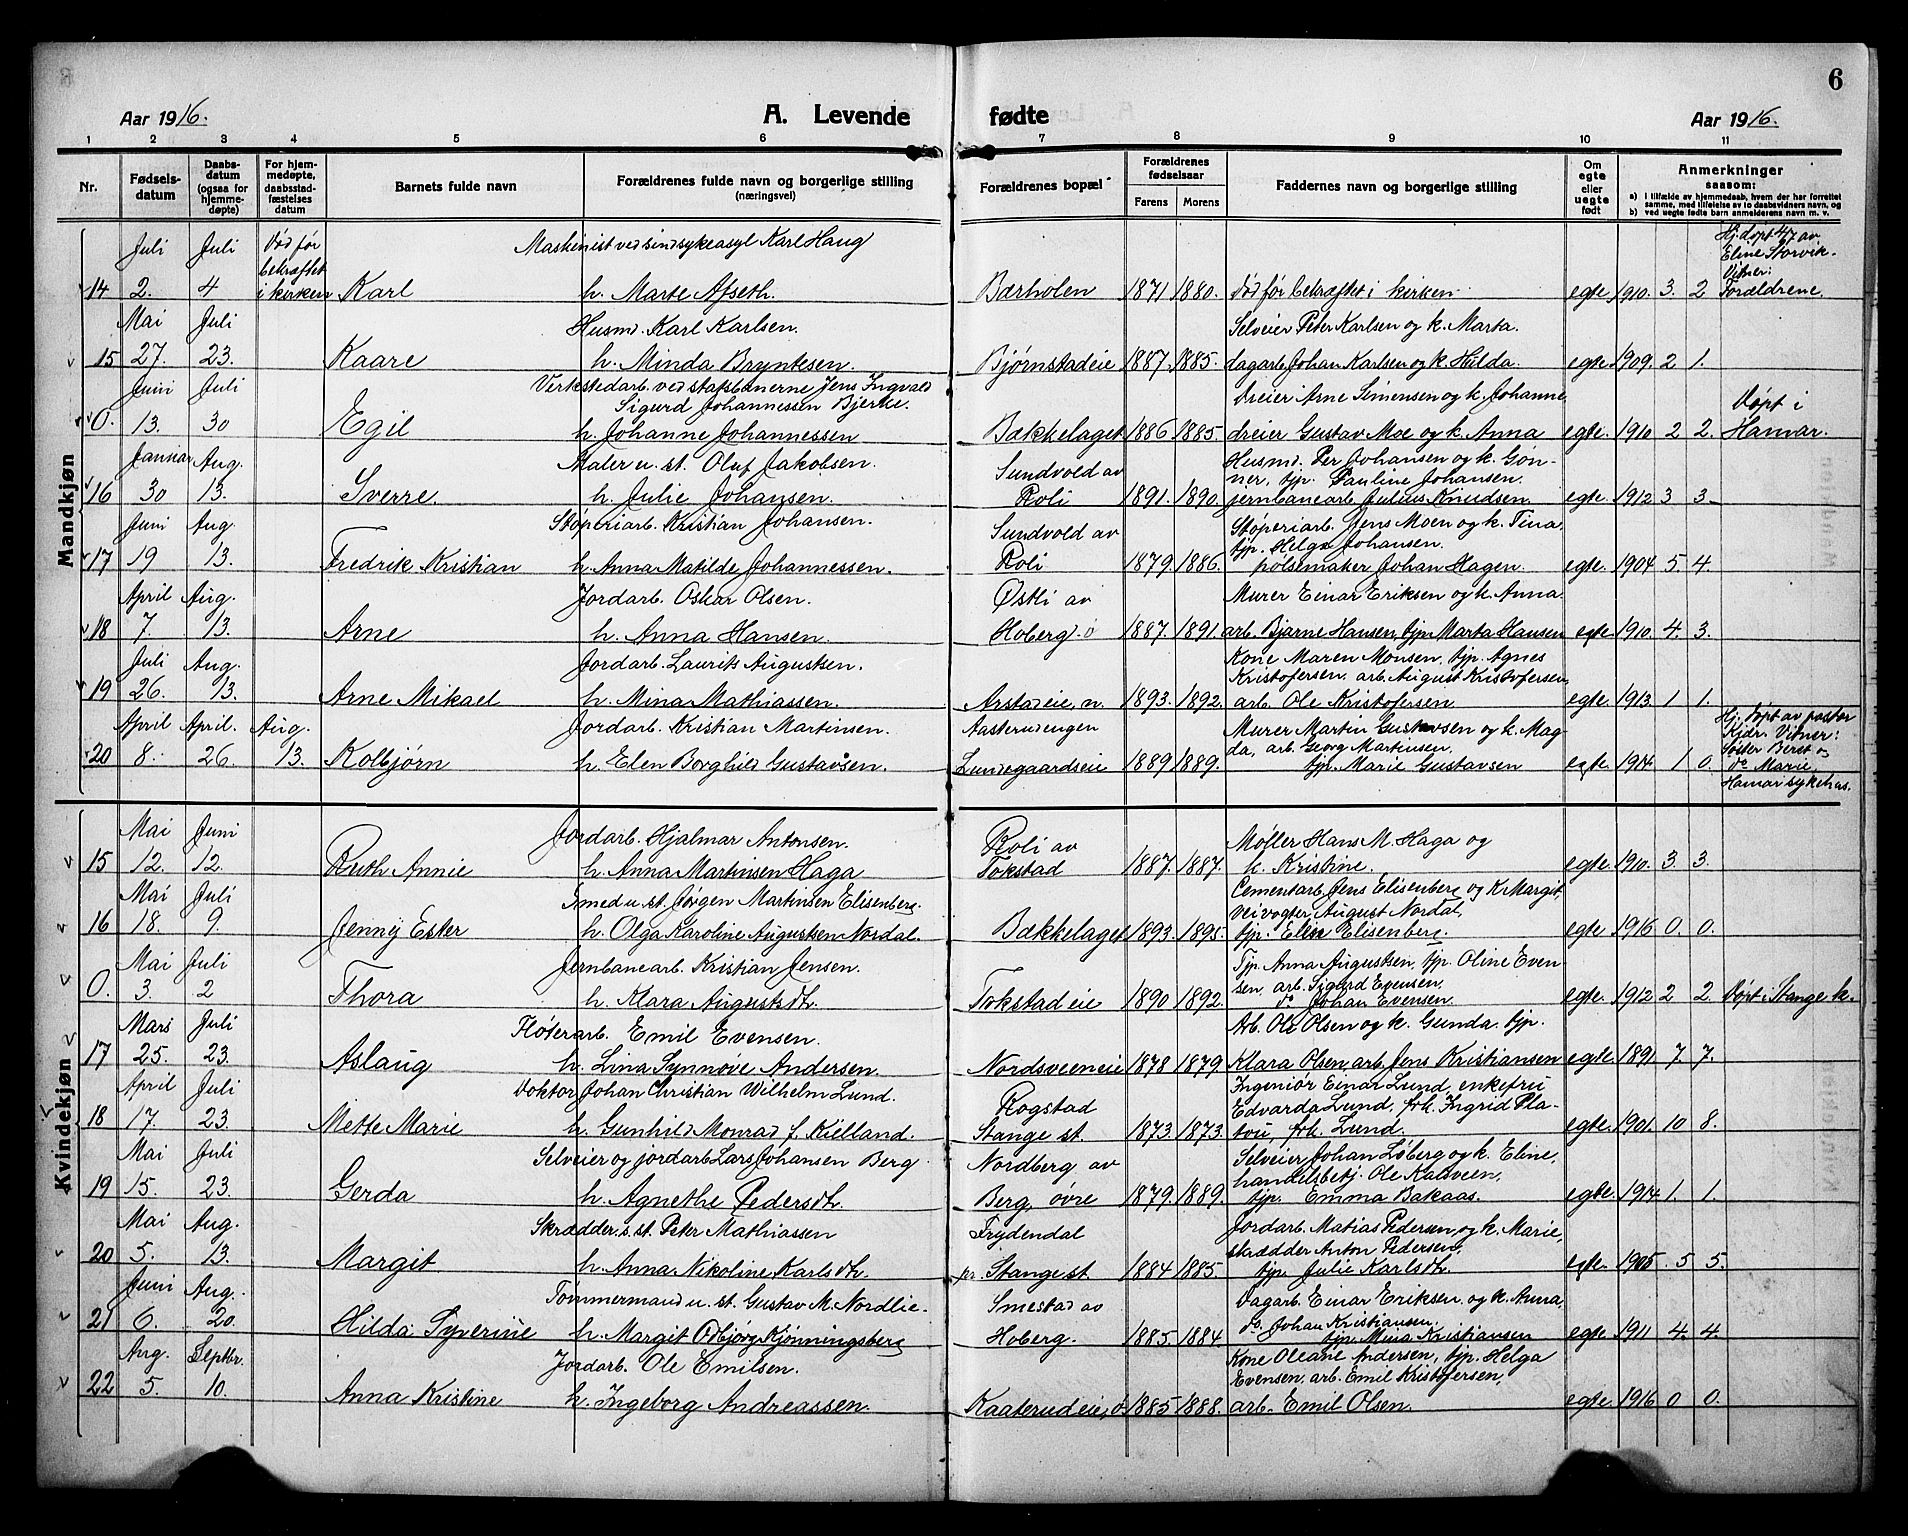 6
Aar 1916.
A. Levende
fødte
Aar 1916.
1 2 3 4 5 6 7 8 9 10 11
Nr.
Fødsels-
datum
Daabs-
datum
(ogsaa for
hjemme-
døpte)
For hjem-
medøpte,
daabsstad-
fæstelses
datum
Barnets fulde navn
Forældrenes fulde navn og borgerlige stilling
(næringsvei)
Forældrenes bopæl
Forældrenes
fødselsaar
Farens Morens
Faddernes navn og borgerlige stilling
Om
egte
eller
uegte
født
Anmerkninger
saasom:
a) I tilfælde av hjemmedaab, hvem der har forrettet
samme, med tilføielse av to daabsvidners navn, og
b) ved uegte fødte barn anmelderens navn m. v.
Mandkjøn
Juli Juli Død før Maskinist ved sindsykeasyl Karl Haug Hj. døpt 4/7 av
bekræftet Eline Storvik.
Vitner:
14 2. 4 i kirken Karl h. Marte Afseth. Bærholen 1871 1880. Død før bekræftet i kirken egte 1910. 3. 2 Forældrene.
Mai Juli Husmd. Karl Karlsen. Selveier Peter Karlsen og k. Marta.
15 27. 23. Kaare h. Minda Bryntesen. Bjørnstadeie 1887. 1885. dagarb. Johan Karlsen og k. Hilda. egte 1909. 2 1.
Juni Juli Verkstedarb. ved statsbanerne Jens Ingvald
Sigurd Johannessen Bjerke. Dreier Arne Simensen og k. Johanne, Døpt i
0. 13. 30 Egil h. Johanne Johannessen Bækkelaget 1886 1885. dreier Gustav Moe og k. Anna egte. 1910 2 2. Hamar.
Januar Aug. Maler u. st. Oluf Jakobsen. Sundvold av Husmd. Per Johansen og k. Gon-
ner, tjp. Pauline Johansen.
16 30 13. Sverre. h. Julie Johansen. Roli 1891. 1890. jernbanearb. Julius Knudsen. egte. 1912 3 3.
Juni Aug. Støperiarb. Kristian Johansen. Sundvold av Støperiarb. Jens Moen og k. Tina.
tjp. Helga Johansen.
17 19 13. Fredrik Kristian h. Anna Matilde Johannessen. Roli 1879. 1886. pølsemaker Johan Hagen. egte. 1904 5. 4.
April Aug. Jordarb. Oskar Olsen. Østli av Murer Einar Eriksen og k. Anna.
18 7. 13. Arne h. Anna Hansen. Hoberg. ø 1887. 1891. arb. Bjarne Hansen, tjp. Marta Hansen egte 1910. 4. 3.
Juli Aug. Jordarb. Laurits Augustsen. Kone Maren Monsen, tjp. Agnes
Kristofersen, arb. August Kristofersen,
19 26. 13. Arne Mikael h. Mina Mathiassen. Arstadeie, n. 1893. 1892. arb. Ole Kristofersen. egte. 1913. 1 1.
April April. Aug. Jordarb. Kristian Martinsen. Aasterudengen Murer Martin Gustavsen og k. Mag- Hj. døpt av pastor
da, arb. Georg Martinsen, Kjdr. Vitner:
Søster Beret og
20 8. 26. 13. Kolbjørn h. Elen Borghild Gustavsen. Lundegaardseie 1889 1889. tjp. Marie Gustavsen egte. 1914. 1 0. do Marie.
Hamar sykehus.
Kvindekjøn
Mai Juni Jordarb. Hjalmar Antonsen. Roli av Møller Hans M. Haga og
15 12. 12. Ruth Annie h. Anna Martinsen Haga Tokstad 1887. 1887. k. Kristine. egte. 1910. 3. 3.
Mai Juli Smed u. st. Jørgen Martinsen Elisenberg. Cementarb. Jens Elisenberg og k Margit,
veivogter August Nordal,
16 18. 9. Jenny Ester h. Olga Karoline Augustsen Nordal. Bækkelaget 1893. 1895. tjp. Eline Elisenberg. egte. 1916 0. 0.
Mai Juli Jernbanearb. Kristian Jensen. Tjp. Anna Augustsen, tjp. Oline Even-
sen, arb. Sigurd Evensen,
0. 3. 2 Thora h. Klara Augustsdt. Tokstadeie 1890 1892. do Johan Evensen. egte. 1912 2 2 Døpt i Stange k.
Mars Juli Fløterarb. Emil Evensen. Arb. Ole Olsen og k. Gunda. tjp.
17 25. 23. Aslaug h. Lina Synnøve Andersen. Nordsveeneie 1878 1879. Klara Olsen, arb. Jens Kristiansen egte. 1891. 7 7.
April Juli Doktor Johan Christian Wilhelm Lund. Rogstad Ingeniør Einar Lund, enkefru
Edvarda Lund, frk. Ingrid Pla-
18 17. 23. Mette Marie h. Gunhild Monrad f. Kielland. Stange st. 1873. 1873. tou, frk. Lund. egte. 1901. 10 8.
Mai Juli Selveier og jordarb. Lars Johansen Berg. Nordberg av Selveier Johan Løberg og k. Eline,
handelsbetj. Ole Kaaveen,
19 15. 23. Gerda h. Agnethe Pedersdt. Berg, øvre 1879. 1889. tjp. Emma Bakaas. egte. 1914. 1. 1.
Mai Aug. Skrædder s. st. Peter Mathiassen Frydendal Jordarb. Matias Pedersen og k. Marie,
skrædder Anton Pedersen,
20 5. 13. Margit. h. Anna Nikoline Karlsdt. pr. Stange st. 1884 1885. tjp. Julie Karlsdt. egte. 1905. 5 5.
Juni Aug. Tømmermand u. st. Gustav M. Nordlie. Smestad av Dagarb. Einar Eriksen, og k. Anna,
do. Johan Kristiansen.
21 6. 20. Hilda Syverine h. Margit Odbjørg Kjønningsberg Hoberg. 1885. 1884. tjp. Mina Kristiansen egte 1911 4. 4.
Aug. Septbr. Jordarb. Ole Emilsen. Kone Oleane Andersen, tjp. Helga
Evensen, arb. Emil Kristofersen,
22 5. 10. Anna Kristine h. Ingeborg Andreassen. Kaaterudeie, ø. 1885 1888. arb. Emil Olsen. egte. 1916 0 0.